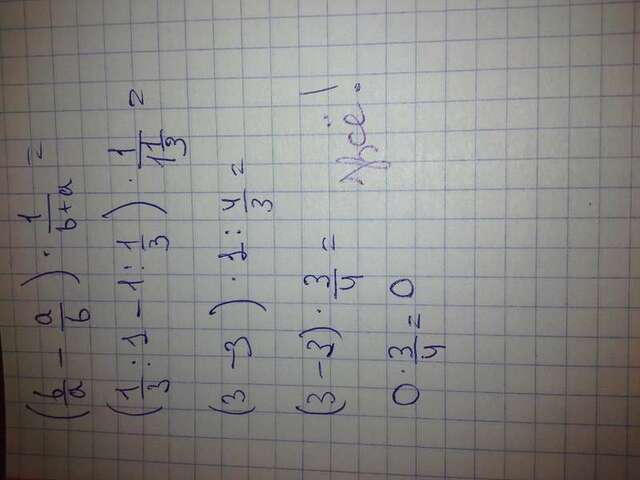 (b/a - a/b) · 1/(b+a) =
(1/3 : 1 - 1 : 1/3) · 1/(1 1/3) =
(3 - 3) · 1 : 4/3 =
(3 - 3) · 3/4 =
всё!
0 · 3/4 = 0